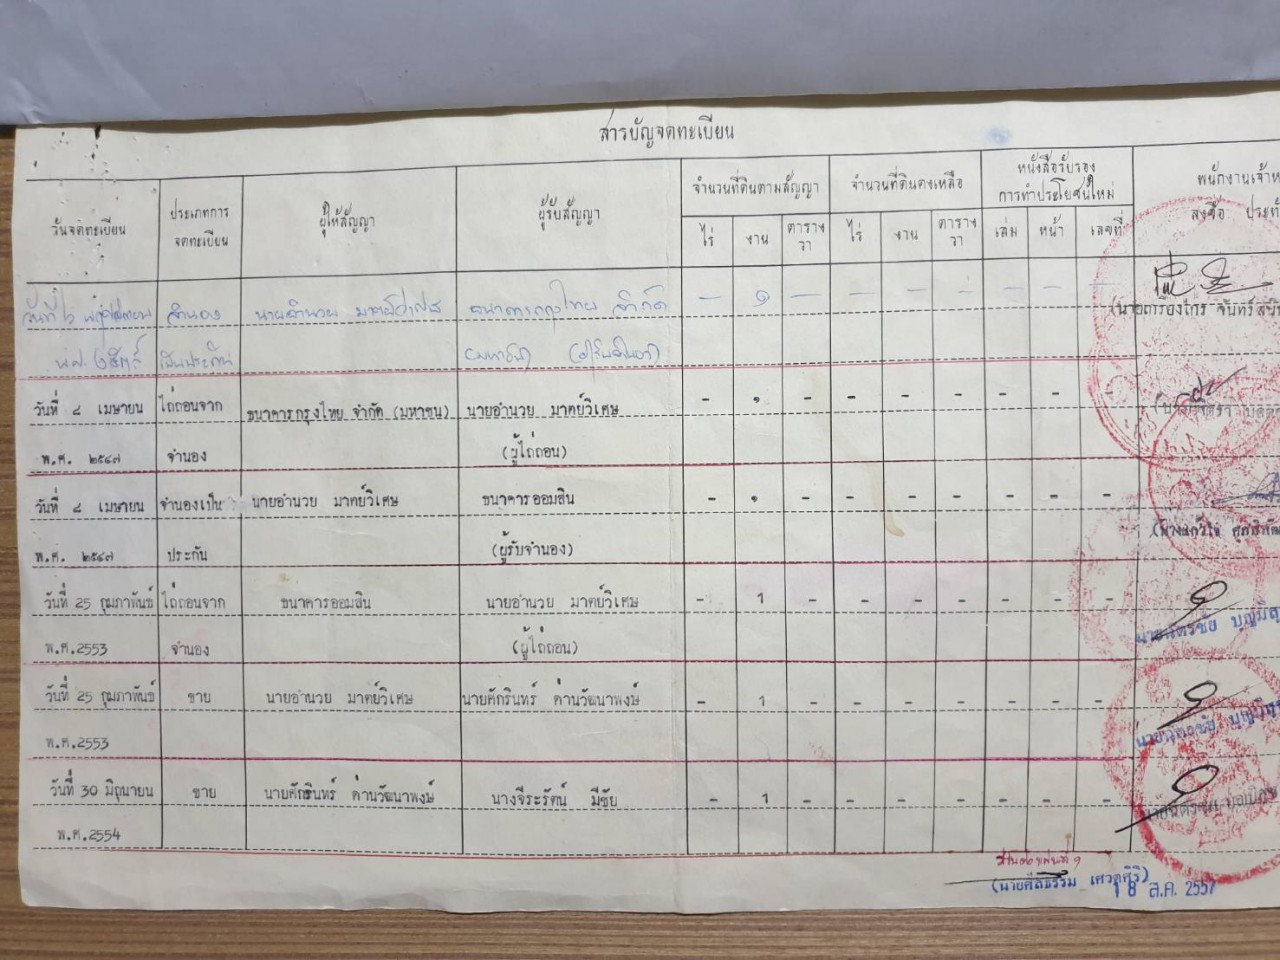 สารบัญจดทะเบียน
วันจดทะเบียน ประเภทการจดทะเบียน ผู้ให้สัญญา ผู้รับสัญญา จำนวนที่ดินตามสัญญา จำนวนที่ดินคงเหลือ หนังสือรับรองการทำประโยชน์ใหม่ พนักงานเจ้าห
ไร่ งาน ตารางวา ไร่ งาน ตารางวา เล่ม หน้า เลขที่ ลงชื่อ ประทั
จำนอง นายอำนวย มาตย์วิเศษ ธนาคารกรุงไทย จำกัด — ๑ — — — — — — —
พ.ศ. เป็นประกัน (มหาชน)
วันที่ ๘ เมษายน ไถ่ถอนจาก ธนาคารกรุงไทย จำกัด (มหาชน) นายอำนวย มาตย์วิเศษ - ๑ - - - - - - -
พ.ศ. ๒๕๔๗ จำนอง (ผู้ไถ่ถอน)
วันที่ ๘ เมษายน จำนองเป็น นายอำนวย มาตย์วิเศษ ธนาคารออมสิน - ๑ - - - - - - -
พ.ศ. ๒๕๔๗ ประกัน (ผู้รับจำนอง)
วันที่ 25 กุมภาพันธ์ ไถ่ถอนจาก ธนาคารออมสิน นายอำนวย มาตย์วิเศษ - 1 - - - - - - -
พ.ศ.2553 จำนอง (ผู้ไถ่ถอน)
วันที่ 25 กุมภาพันธ์ ขาย นายอำนวย มาตย์วิเศษ นายศักรินทร์ ด่านวัฒนาพงษ์ - 1 - - - - - - -
พ.ศ.2553
วันที่ 30 มิถุนายน ขาย นายศักรินทร์ ด่านวัฒนาพงษ์ นางจีระรัตน์ มีชัย - 1 - - - - - - -
พ.ศ.2554
18 ส.ค. 2557